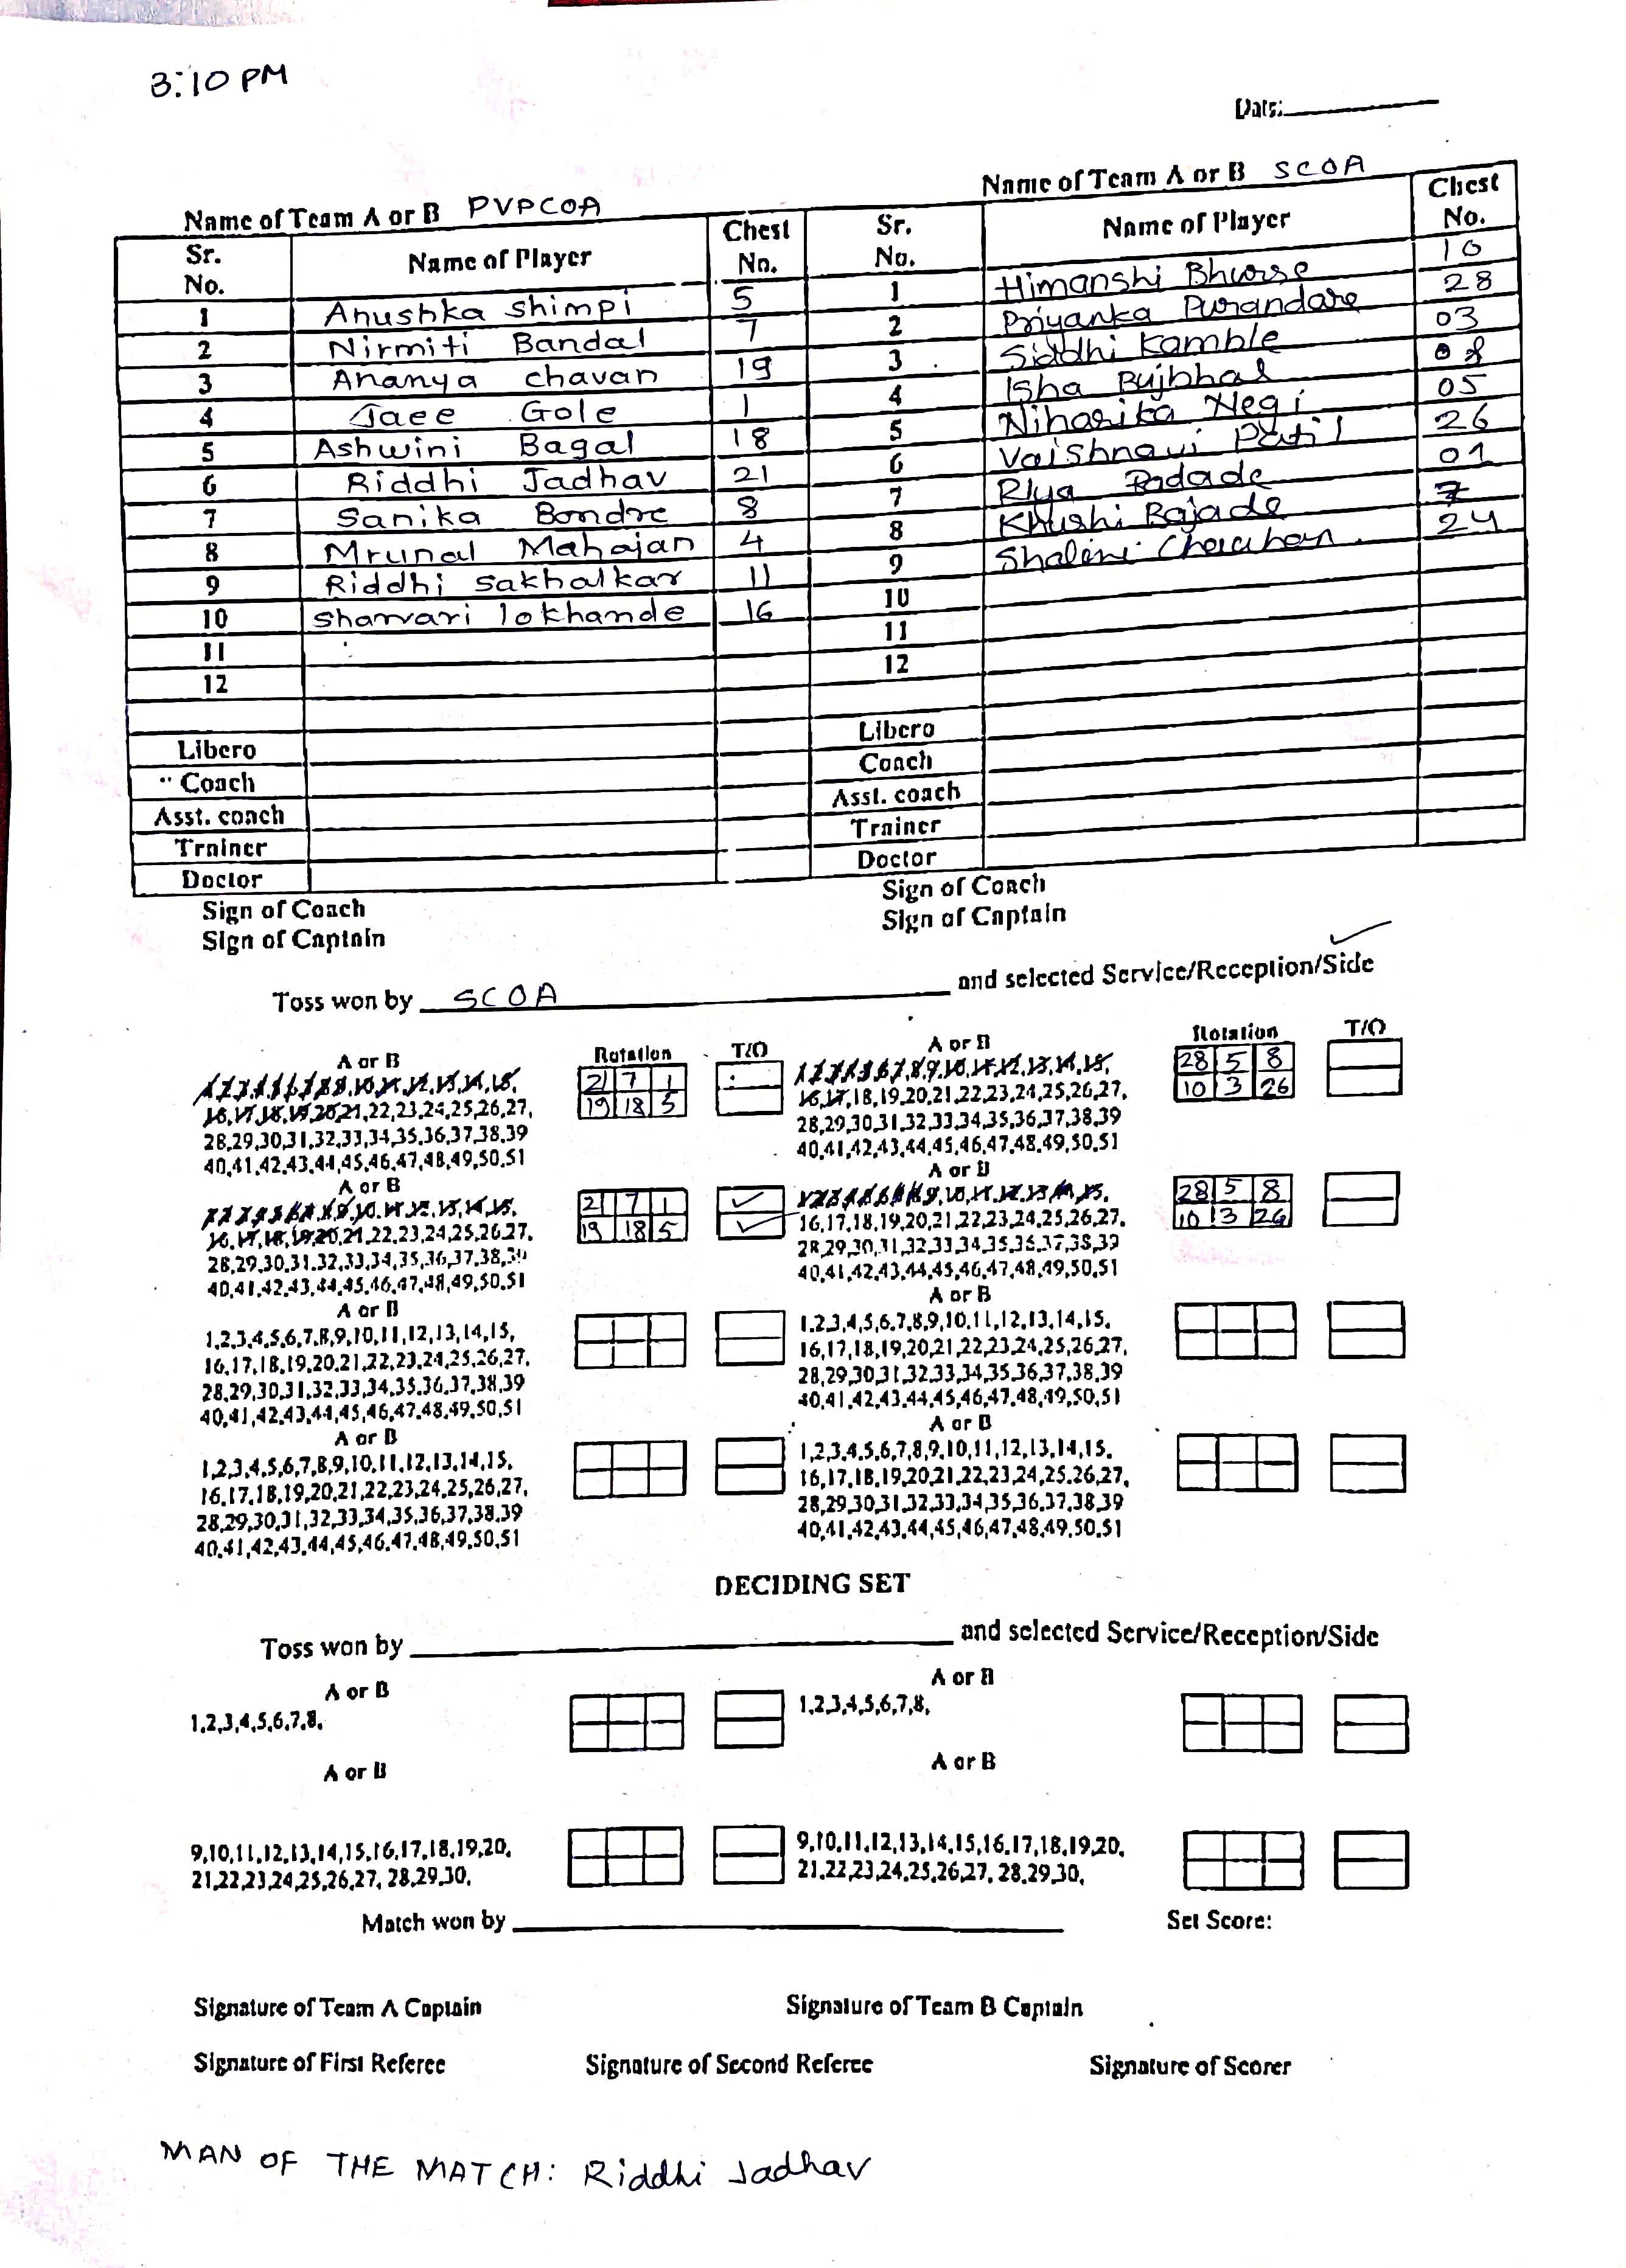 3:10 PM
Date:
Name of Team A or B PVPCOA
Name of Team A or B SCOA
Sr. No. Name of Player Chest No. Sr. No. Name of Player Chest No.
1 Anushka Shimpi 5 1 Himanshi Bhurse 10
2 Nirmiti Bandal 7 2 Priyanka Purandare 28
3 Ananya chavan 19 3 Siddhi Kamble 03
4 Jaee Gole 1 4 Isha Bujbhal 08
5 Ashwini Bagal 18 5 Niharika Negi 05
6 Riddhi Jadhav 21 6 Vaishnavi Patil 26
7 Sanika Bondre 8 7 Riya 01
8 Mrunal Mahajan 4 8 Khushi 7
9 Riddhi Sakhalkar 11 9 Shalini Chauhan 24
10 Sharvari lokhande 16 10
11 11
12 12
Libero Libero
Coach Coach
Asst. coach Asst. coach
Trainer Trainer
Doctor Doctor
Sign of Coach Sign of Coach
Sign of Captain Sign of Captain
Toss won by SCOA and selected Service/Reception/Side
A or B Rotation T/O A or B Rotation T/O
1,2,3,4,5,6,7,8,9,10,11,12,13,14,15, 21 7 1 1,2,3,4,5,6,7,8,9,10,11,12,13,14,15, 28 5 8
16,17,18,19,20,21,22,23,24,25,26,27, 19 18 5 16,17,18,19,20,21,22,23,24,25,26,27, 10 3 26
28,29,30,31,32,33,34,35,36,37,38,39 28,29,30,31,32,33,34,35,36,37,38,39
40,41,42,43,44,45,46,47,48,49,50,51 40,41,42,43,44,45,46,47,48,49,50,51
A or B A or B
1,2,3,4,5,6,7,8,9,10,11,12,13,14,15, 21 7 1 ✓ 1,2,3,4,5,6,7,8,9,10,11,12,13,14,15, 28 5 8
16,17,18,19,20,21,22,23,24,25,26,27, 19 18 5 ✓ 16,17,18,19,20,21,22,23,24,25,26,27, 10 3 26
28,29,30,31,32,33,34,35,36,37,38,39 28,29,30,31,32,33,34,35,36,37,38,39
40,41,42,43,44,45,46,47,48,49,50,51 40,41,42,43,44,45,46,47,48,49,50,51
A or B A or B
1,2,3,4,5,6,7,8,9,10,11,12,13,14,15, 1,2,3,4,5,6,7,8,9,10,11,12,13,14,15,
16,17,18,19,20,21,22,23,24,25,26,27, 16,17,18,19,20,21,22,23,24,25,26,27,
28,29,30,31,32,33,34,35,36,37,38,39 28,29,30,31,32,33,34,35,36,37,38,39
40,41,42,43,44,45,46,47,48,49,50,51 40,41,42,43,44,45,46,47,48,49,50,51
A or B A or B
1,2,3,4,5,6,7,8,9,10,11,12,13,14,15, 1,2,3,4,5,6,7,8,9,10,11,12,13,14,15,
16,17,18,19,20,21,22,23,24,25,26,27, 16,17,18,19,20,21,22,23,24,25,26,27,
28,29,30,31,32,33,34,35,36,37,38,39 28,29,30,31,32,33,34,35,36,37,38,39
40,41,42,43,44,45,46,47,48,49,50,51 40,41,42,43,44,45,46,47,48,49,50,51
DECIDING SET
Toss won by and selected Service/Reception/Side
A or B A or B
1,2,3,4,5,6,7,8, 1,2,3,4,5,6,7,8,
A or B A or B
9,10,11,12,13,14,15,16,17,18,19,20, 9,10,11,12,13,14,15,16,17,18,19,20,
21,22,23,24,25,26,27, 28,29,30, 21,22,23,24,25,26,27, 28,29,30,
Match won by Set Score:
Signature of Team A Captain Signature of Team B Captain
Signature of First Referee Signature of Second Referee Signature of Scorer
MAN OF THE MATCH: Riddhi Jadhav